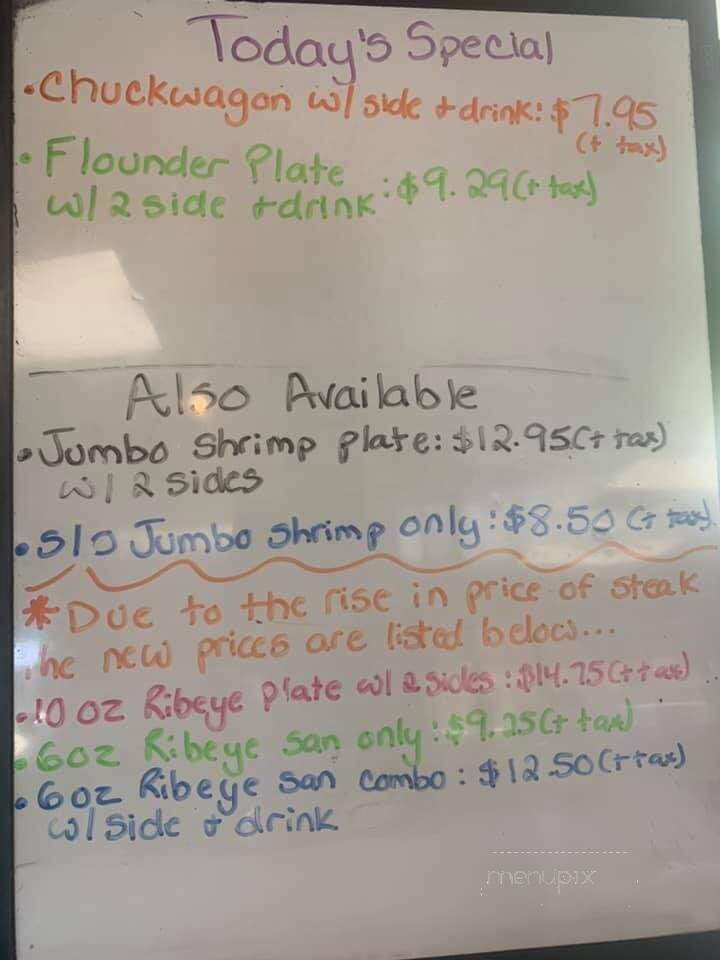 Today's Special
• Chuckwagon w/ side + drink: $7.95
(+ tax)
• Flounder Plate
w/ 2 side + drink : $9.29 (+ tax)
Also Available
• Jumbo Shrimp plate: $12.95 (+ tax)
w/ 2 sides
• S/O Jumbo shrimp only: $8.50 (+ tax)
* Due to the rise in price of steak
the new prices are listed below...
• 10 oz Ribeye Plate w/ 2 sides: $14.75 (+ tax)
• 6oz Ribeye San only: $9.25 (+ tax)
• 6oz Ribeye San combo: $12.50 (+ tax)
w/ side + drink
menupix